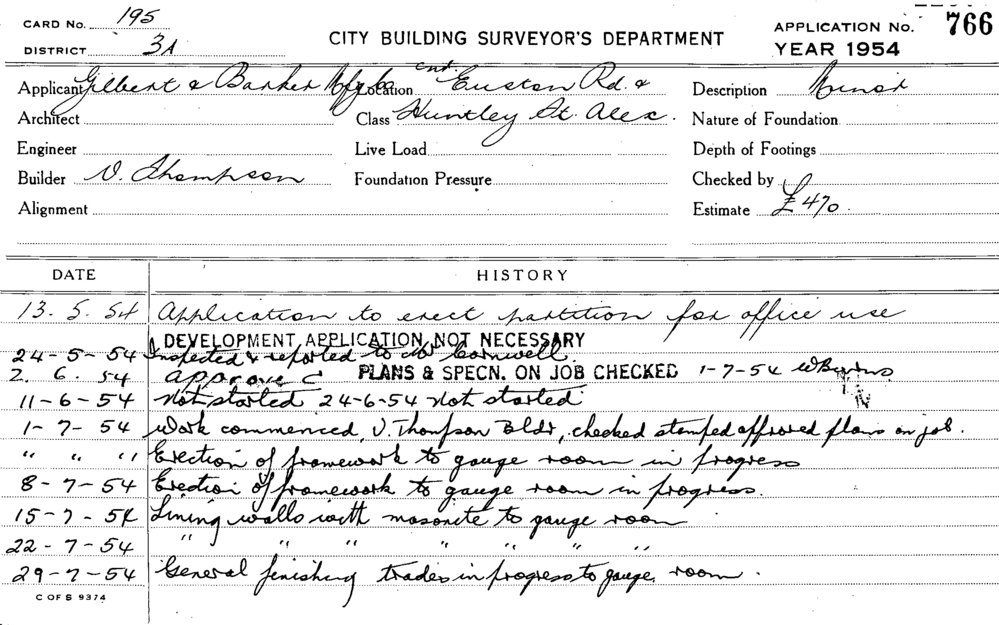 CARD No. 195
DISTRICT 3A
CITY BUILDING SURVEYOR'S DEPARTMENT
APPLICATION No. 766
YEAR 1954
Applicant Gilbert & Barker Mfg Co Location cnr Euston Rd. &
Description Minor
Architect Class Huntley St. Alex.
Nature of Foundation
Engineer Live Load
Depth of Footings
Builder V. Thompson Foundation Pressure
Checked by
Alignment
Estimate £470.
DATE HISTORY
13. 5. 54 Application to erect partition for office use
DEVELOPMENT APPLICATION NOT NECESSARY
24-5-54 Inspected & reported to Mr Cornwell.
2. 6. 54 Approve C PLANS & SPECN. ON JOB CHECKED 1-7-54
11-6-54 Not started 24-6-54 Not started
1-7-54 Work commenced, V. Thompson Bldr, checked stamped approved plans on job.
" " " Erection of framework to gauge room in progress
8-7-54 Erection of framework to gauge room in progress.
15-7-54 Lining walls with masonite to gauge room
22-7-54 " " " " " " "
29-7-54 General finishing trades in progress to gauge room.
C OF S 9374